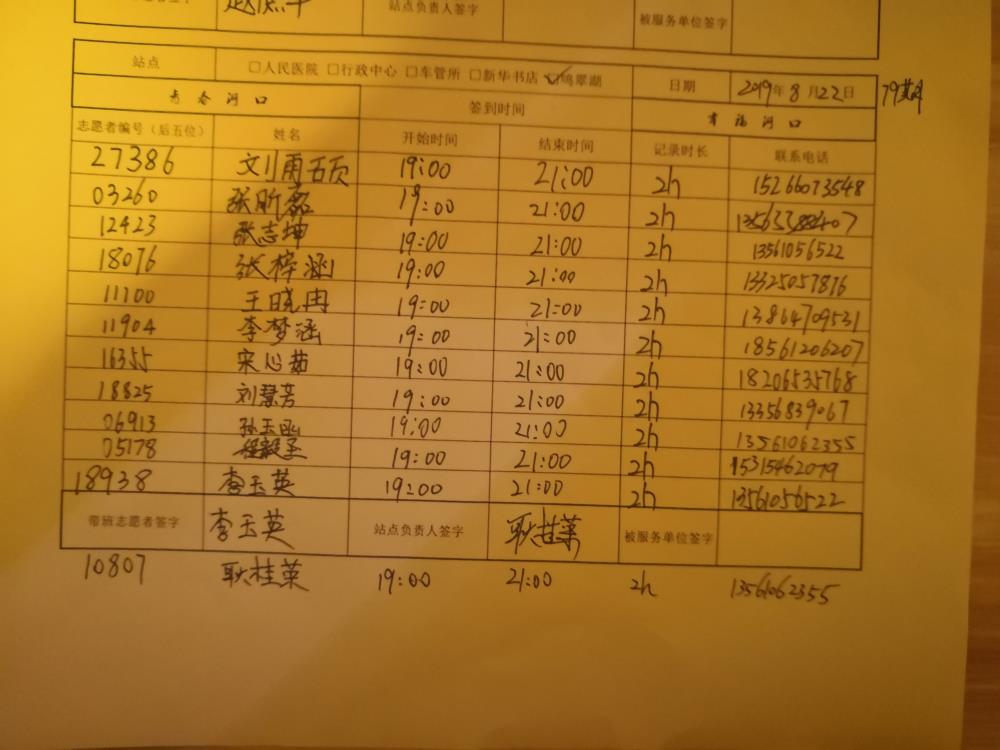 站点负责人签字 被服务单位签字
站点 □人民医院 □行政中心 □车管所 □新华书店 ☑鸣翠湖 日期 2019年8月22日
青春河口 签到时间 幸福河口
志愿者编号（后五位） 姓名 开始时间 结束时间 记录时长 联系电话
27386 刘雨硕 19:00 21:00 2h 15266073548
03260 张昕磊 19:00 21:00 2h
12423 张志坤 19:00 21:00 2h 13561056522
18076 张梓涵 19:00 21:00 2h 13325057876
11700 王晓冉 19:00 21:00 2h 13864709531
11904 李梦涵 19:00 21:00 2h 18561206207
16355 宋心茹 19:00 21:00 2h 18206535768
18825 刘慧芳 19:00 21:00 2h 13356839067
06913 孙玉函 19:00 21:00 2h 13561062355
05178 19:00 21:00 2h 15315462079
18938 李玉英 19:00 21:00 2h 13561056522
带班志愿者签字 李玉英 站点负责人签字 耿桂荣 被服务单位签字
10807 耿桂荣 19:00 21:00 2h 13561062355